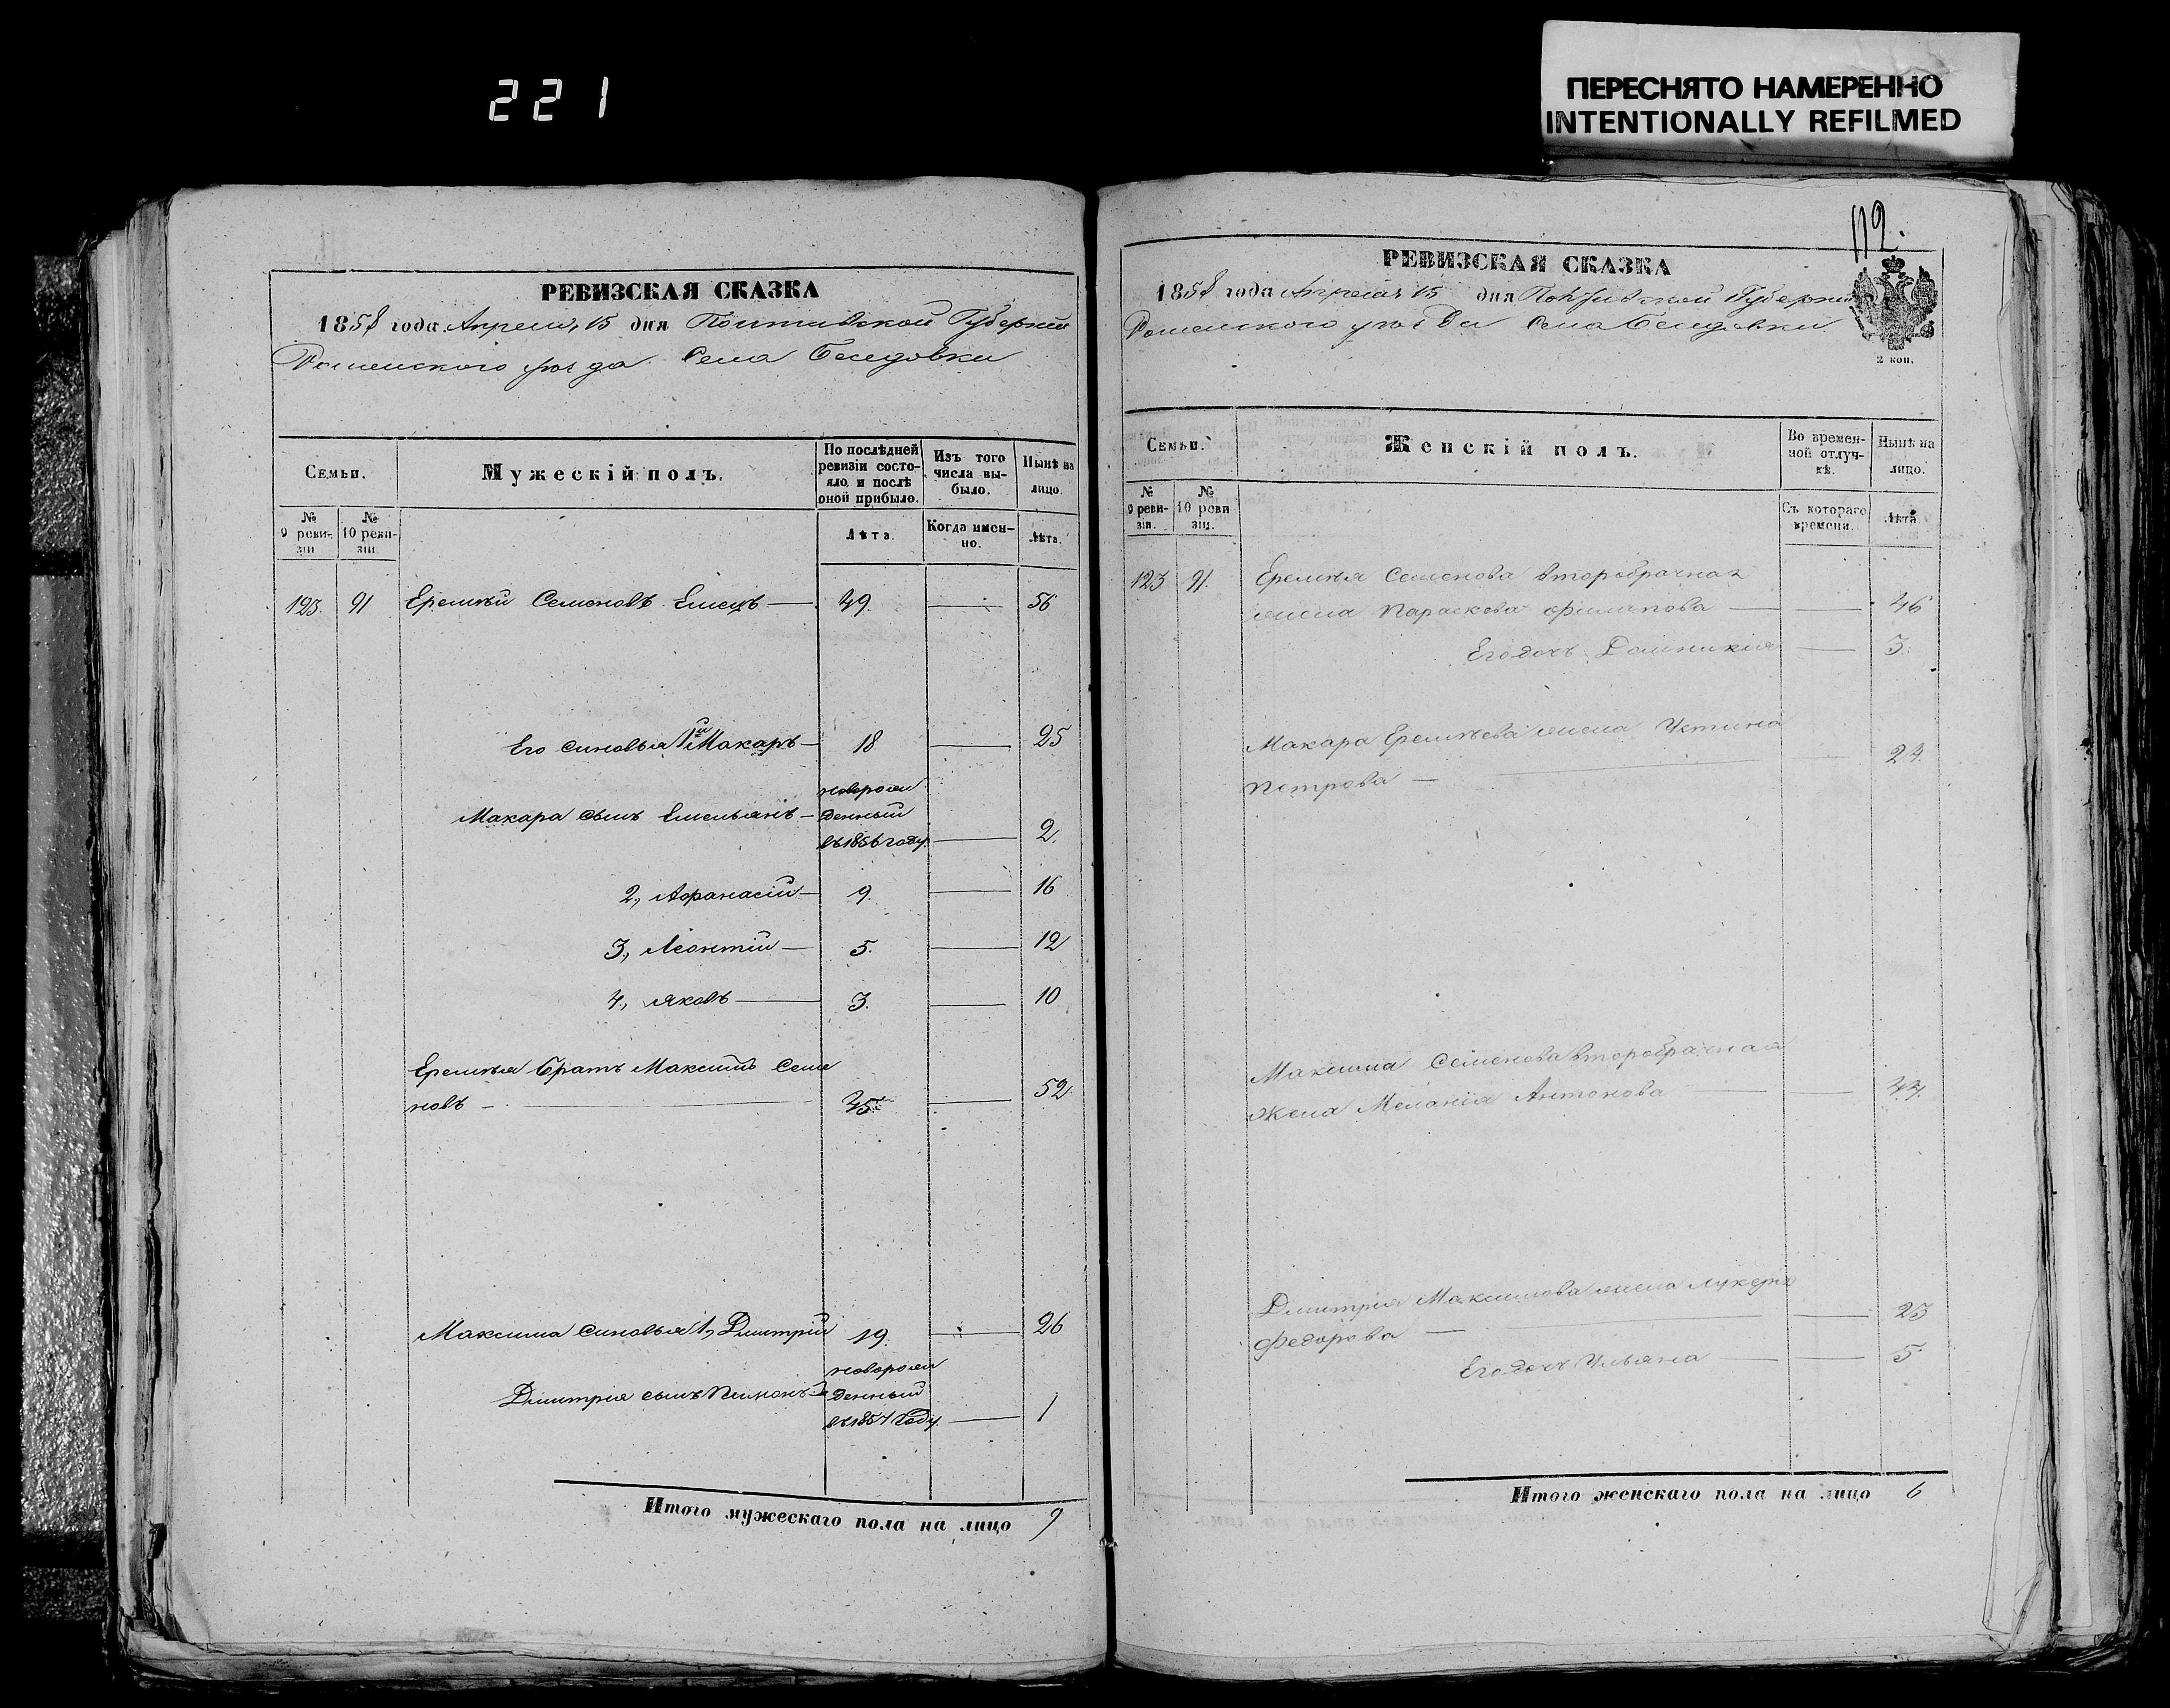 221
ПЕРЕСНЯТО НАМЕРЕННО
INTENTIONALLY REFILMED
РЕВИЗСКАЯ СКАЗКА
1858 года Апреля 15 дня Полтавской Губернии
Роменского уезда Села Беседовки
Семьи.
Мужескій полъ.
По послѣдней ревизіи состояло, и послѣ оной прибыло.
Изъ того числа выбыло.
Нынѣ на лицо.
№ 9 ревизіи
№ 10 ревизіи
Лѣта.
Когда именно.
Лѣта.
123. 91 Еремѣй Семеновъ Емецъ — 49. — 56
Его синовья 1й Макаръ — 18 — 25
Макара сынъ Емельянъ — новорожденный въ 1856 году — 2.
2., Афанасій — 9. — 16
3., Леонтій — 5. — 12
4., Яковъ — 3. — 10
Еремѣя братъ Максимъ Семе
новъ — 45. — 52
Максима синовья 1, Дмитрій 19. — 26
Дмитрія сынъ Пимонъ — новорожденный въ 1857 году. — 1
Итого мужескаго пола на лицо 9
112.
РЕВИЗСКАЯ СКАЗКА
1858 года Апреля 15 дня Полтавской Губернии
Роменского уезда Села Беседовки.
2 коп.
Семьи.
Женскій полъ.
Во временной отлучкѣ.
Нынѣ на лицо.
№ 9 ревизіи.
№ 10 ревизіи.
Съ котораго времени.
Лѣта.
123 91. Еремѣя Семенова второбрачная
жена Параскева Филипова — — 46
Его дочь Домникія — 3.
Макара Еремѣева жена Устина
Петрова — — 24.
Максима Семенова второбрачная
жена Меланія Антонова — 47.
Дмитрія Максимова жена Лукерія
Федорова — — 25
Его дочь Ульяна — — 5
Итого женскаго пола на лицо 6